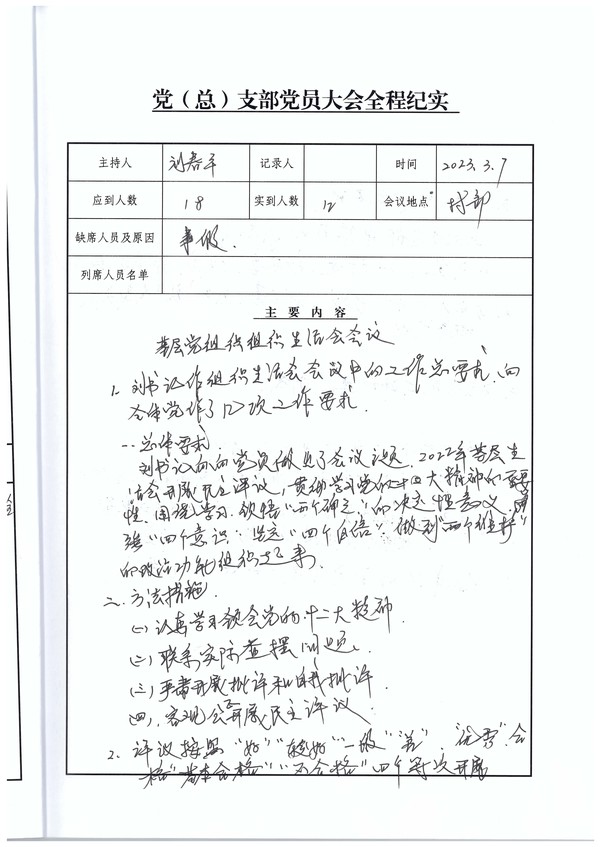 党（总）支部党员大会全程纪实
主持人 刘春平 记录人 时间 2023.3.7
应到人数 18 实到人数 12 会议地点 村部
缺席人员及原因 事假.
列席人员名单
主 要 内 容
基层党组织组织生活会会议
1. 刘书记作组织生活会会议中的工作总要求, 向
全体党作了 次工作要求.
一. 总体要求
刘书记 向党员做 了会议议题. 2022年基层生
活会开展民主评议, 贯彻学习党的 大精神的重要
性. 围绕学习. 领悟“两个确立”的决定性意义. 增
强“四个意识”. 坚定“四个自信”. 做到“两个维护”
的政治功能组织
二. 方法措施
(一) 认真学习领会党的 二大精神.
(二) 联系实际查摆问题.
(三) 严肃开展批评和自我批评
四, 客观公开展民主评议.
2. 评议按照“好”“较好”“一般”“差”. “优秀”合
格”“基本合格”“不合格”四个等次开展